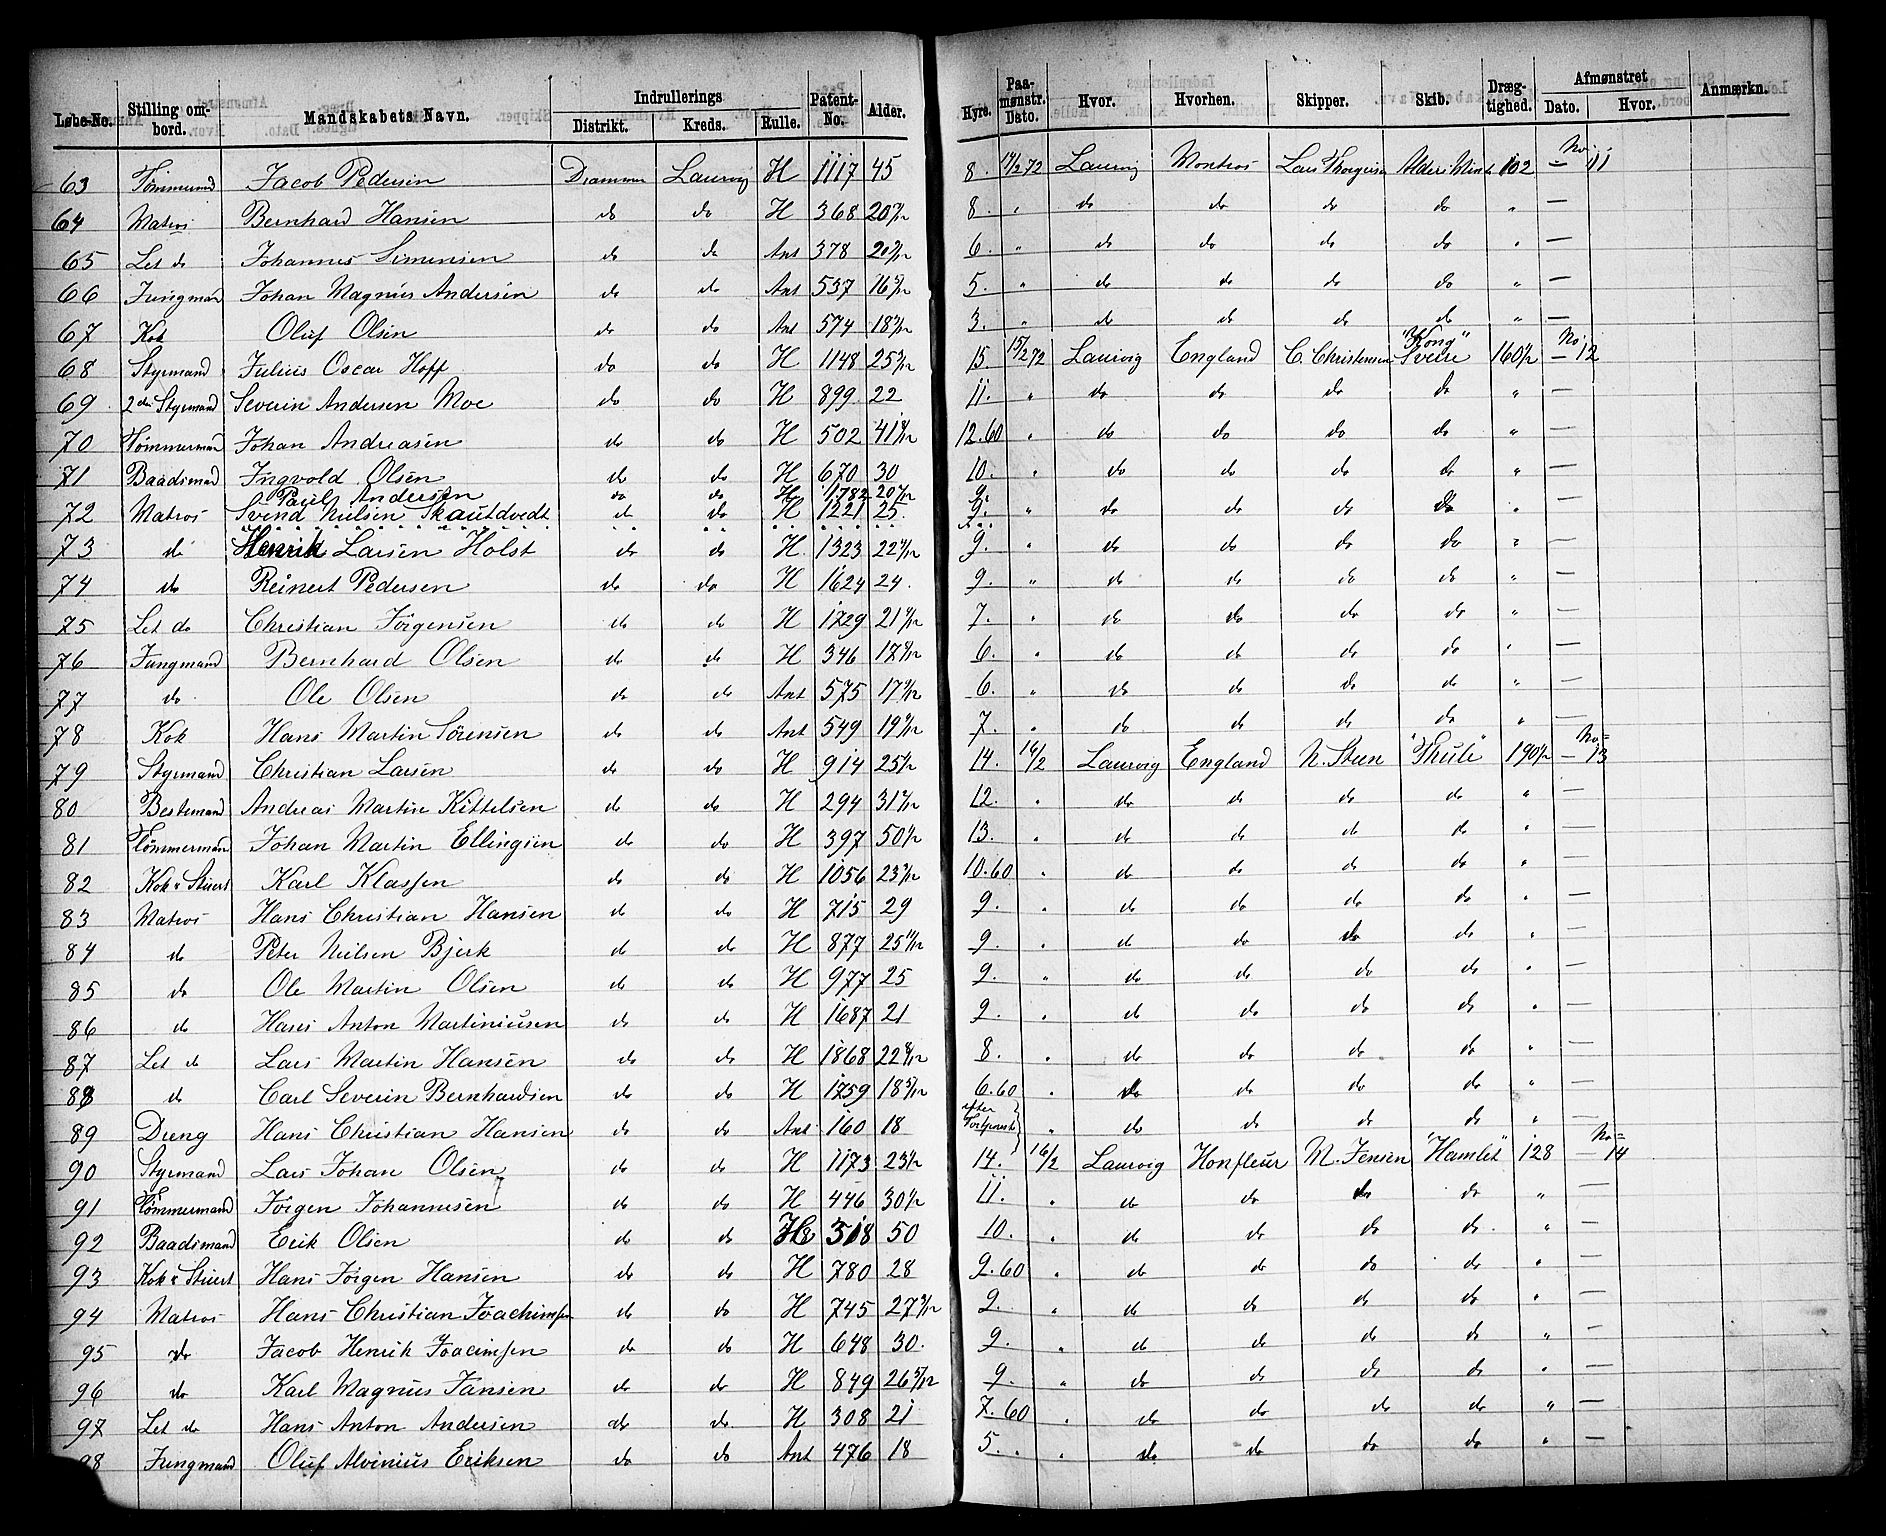 Løbe-No. Stilling ombord. Mandskabets Navn. Indrullerings Distrikt. Kreds. Rulle. Patent-No. Alder. Hyre. Paamønstr. Dato. Hvor. Hvorhen. Skipper. Skib. Drægtighed. Afmønstret Dato. Hvor. Anmærkn.
63 Tømmermd Jacob Pedersen Drammen Laurvig H 1117 45 8. 14/2 72 Laurvig Montros Lars Thorgersen 102 — No 11
64 Matros Bernhard Hansen do do H 368 8. " do do do do " —
65 Let do Johannes Simensen do do Ant 378 6. " do do do do " —
66 Jungmand Johan Magnus Andersen do do Ant 537 5. " do do do do " —
67 Kok Oluf Olsen do do Ant 574 3. " do do do do " —
68 Styrmand Julius Oscar Hoff do do H 1148 15. 15/2 72 Laurvig England C. Christensen "Kong Sverre" 160½ — No 12
69 2den Styrmand Severin Andersen Moe do do H 899 22 11. " do do do do " —
70 Tømmermand Johan Andreasen do do H 502 12.60 " do do do do " —
71 Baadsmand Ingvold Olsen do do H 670 30 10. " do do do do " —
Paul Andersen do do H 1782 9.
72 Matros Svend Nielsen Skautdvedt do do H 1221 25 9. " do do do do " —
73 do Henrik Larsen Holst do do H 1323 9. " do do do do " —
74 do Reinert Pedersen do do H 1624 24. 9. " do do do do " —
75 Let do Christian Jörgensen do do H 1729 7. " do do do do " —
76 Jungmand Bernhard Olsen do do H 346 6. " do do do do " —
77 do Ole Olsen do do Ant 575 6. " do do do do " —
78 Kok Hans Martin Sörensen do do Ant 549 7. " do do do do " —
79 Styrmand Christian Larsen do do H 914 14. 16/2 Laurvig England N. Steen "Thule" 190½ — No 13
80 Bestemand Andreas Martin Kittelsen do do H 294 12. " do do do do " —
81 Tømmermand Johan Martin Ellingsen do do H 397 13. " do do do do " —
82 Kok & Stuert Karl Klassen do do H 1056 10.60 " do do do do " —
83 Matros Hans Christian Hansen do do H 715 29 9. " do do do do " —
84 do Peter Nielsen Bjerk do do H 877 25 11/12 9. " do do do do " —
85 do Ole Martin Olsen do do H 977 25 9. " do do do do " —
86 do Hans Anton Martiniusen do do H 1687 21 9. " do do do do " —
87 Let do Lars Martin Hansen do do H 1868 8. " do do do do " —
88 do Carl Severin Bernhardsen do do H 1759 6.60 " do do do do " —
89 Dreng Hans Christian Hansen do do Ant 160 18 efter Fortjeneste " do do do do " —
90 Styrmand Lars Johan Olsen do do H 1173 14. 16/2 Laurvig Honfleur M. Jensen "Hamlet" 128 — No 14
91 Tømmermand Jörgen Johannesen do do H 446 11. " do do do do " —
92 Baadsmand Erik Olsen do do H 318 50 10. " do do do do " —
93 Kok & Stuert Hans Jörgen Hansen do do H 780 28 9.60 " do do do do " —
94 Matros Hans Christian Joachimsen do do H 745 9. " do do do do " —
95 do Jacob Henrik Joacimsen do do H 648 30. 9. " do do do do " —
96 do Karl Magnus Jansen do do H 849 26 5/12 9. " do do do do " —
97 Let do Hans Anton Andersen do do H 308 21 7.60 " do do do do " —
98 Jungmand Oluf Alvinius Eriksen do do Ant 476 18 5. " do do do do " —